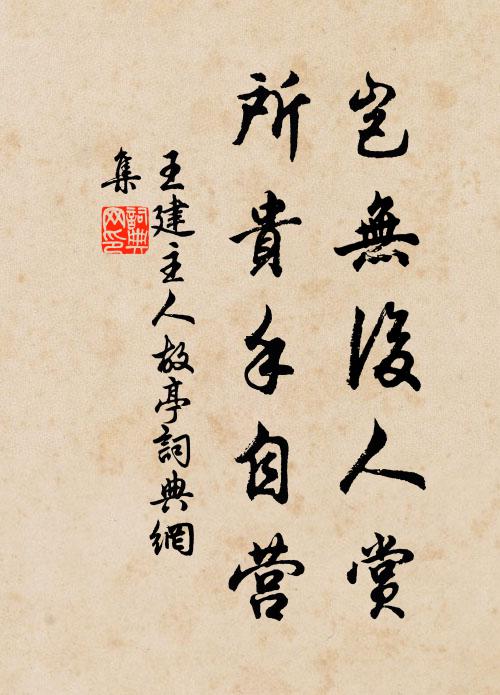 豈無後人賞
所貴手自营
王建主人故亭詞典網
集
詞典
网印